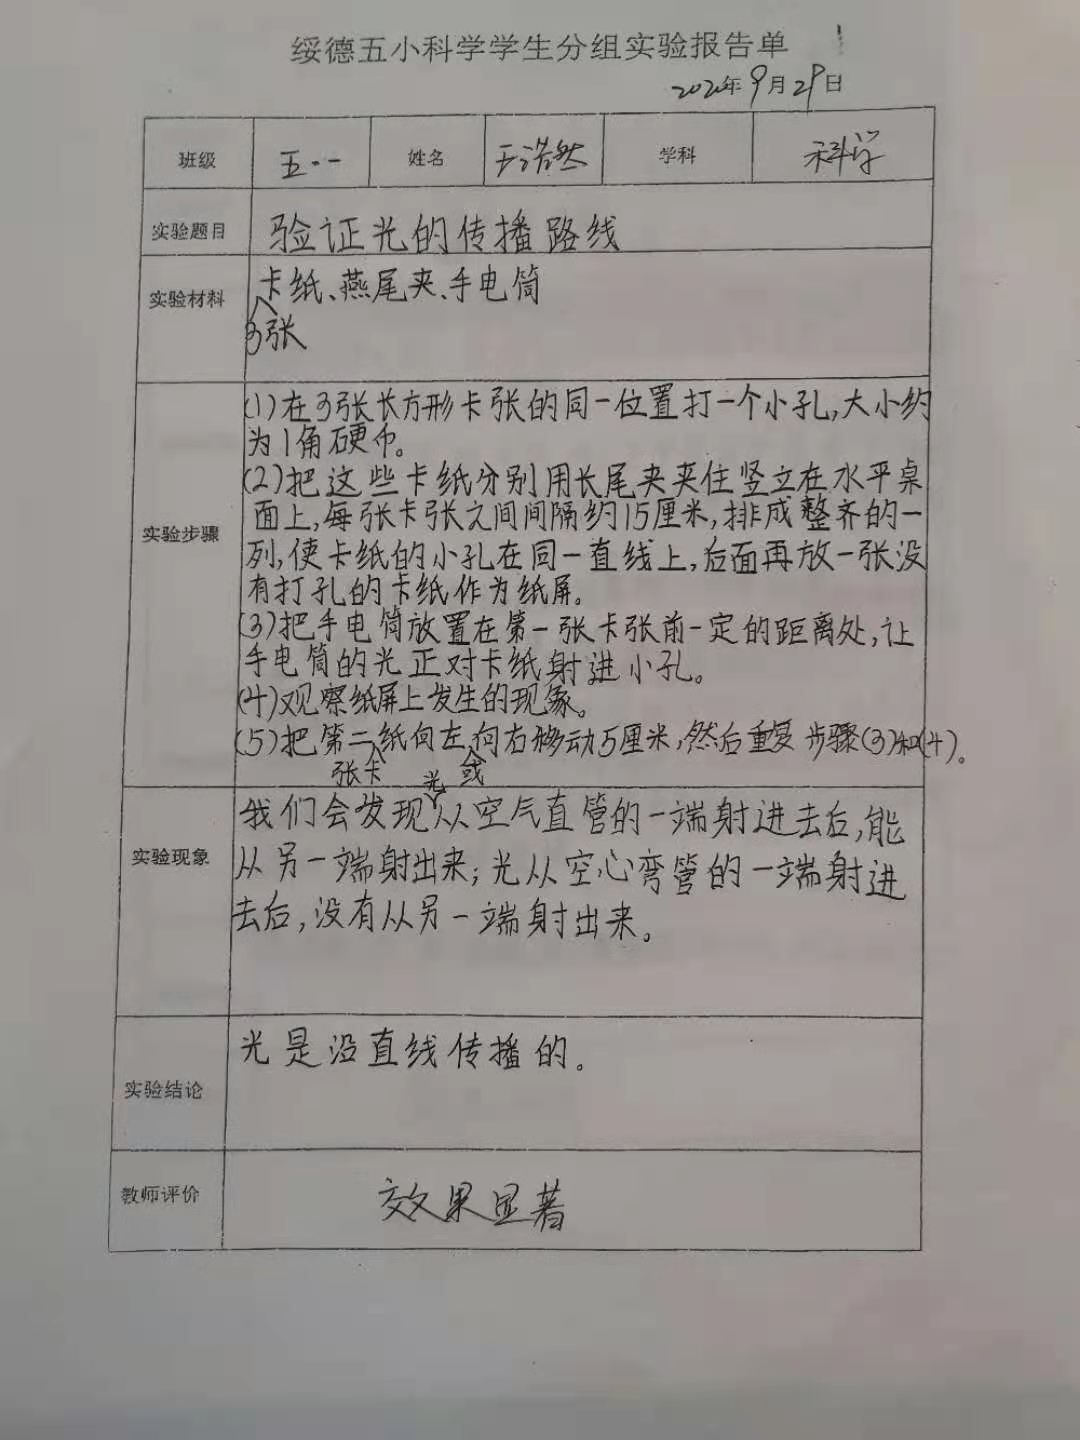 绥德五小科学学生分组实验报告单
2020年9月29日
班级 五·一 姓名 王浩然 学科 科学
实验题目 验证光的传播路线
实验材料 卡纸、燕尾夹、手电筒
3张
实验步骤
(1)在3张长方形卡张的同一位置打一个小孔,大小约
为1角硬币。
(2)把这些卡纸分别用长尾夹夹住竖立在水平桌
面上,每张卡张之间间隔约15厘米,排成整齐的一
列,使卡纸的小孔在同一直线上,后面再放一张没
有打孔的卡纸作为纸屏。
(3)把手电筒放置在第一张卡张前一定的距离处,让
手电筒的光正对卡纸射进小孔。
(4)观察纸屏上发生的现象。
(5)把第二纸向左向右移动5厘米,然后重复步骤(3)和(4)。
张卡 或
光
实验现象
我们会发现从空气直管的一端射进去后,能
从另一端射出来;光从空心弯管的一端射进
去后,没有从另一端射出来。
实验结论 光是沿直线传播的。
教师评价 效果显著